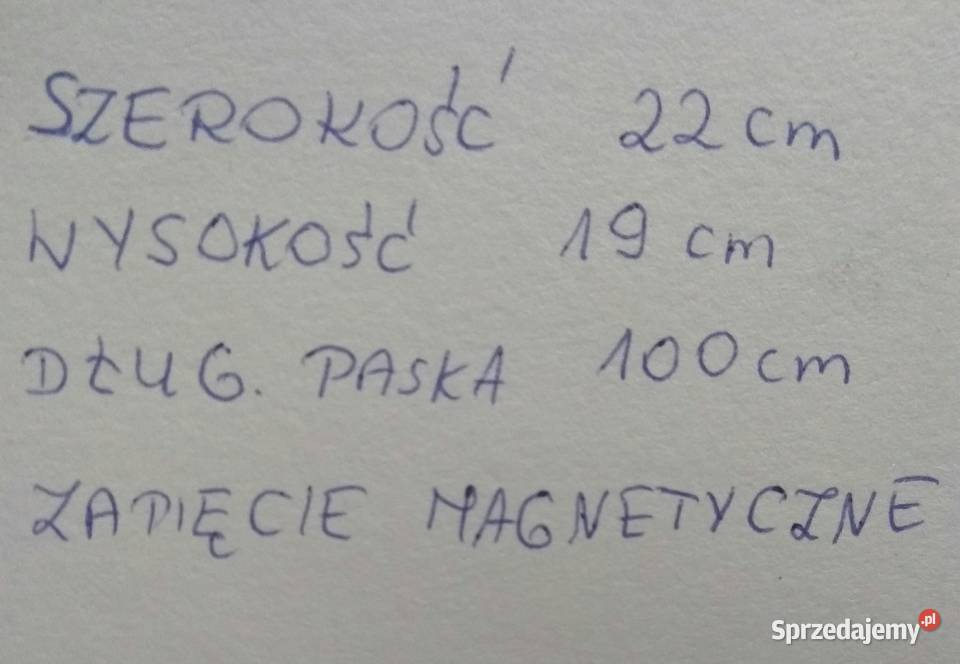 SZEROKOŚĆ 22 cm
WYSOKOŚĆ 19 cm
DŁUG. PASKA 100 cm
ZAPIĘCIE MAGNETYCZNE
Sprzedajemy.pl